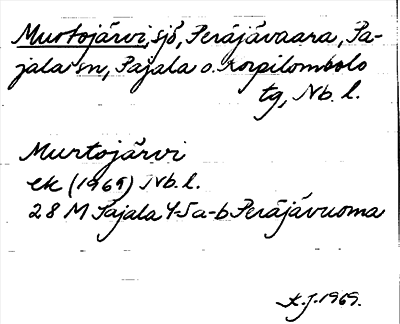 Murtojärvi, sjö, Peräjävaara, Pa-
jala sn, Pajala o. Korpilombolo
tg, Nb. l.
Murtojärvi
ek (1969) Nb. l.
28 M Pajala 4-5 a-b Peräjävuoma
K.J. 1969.